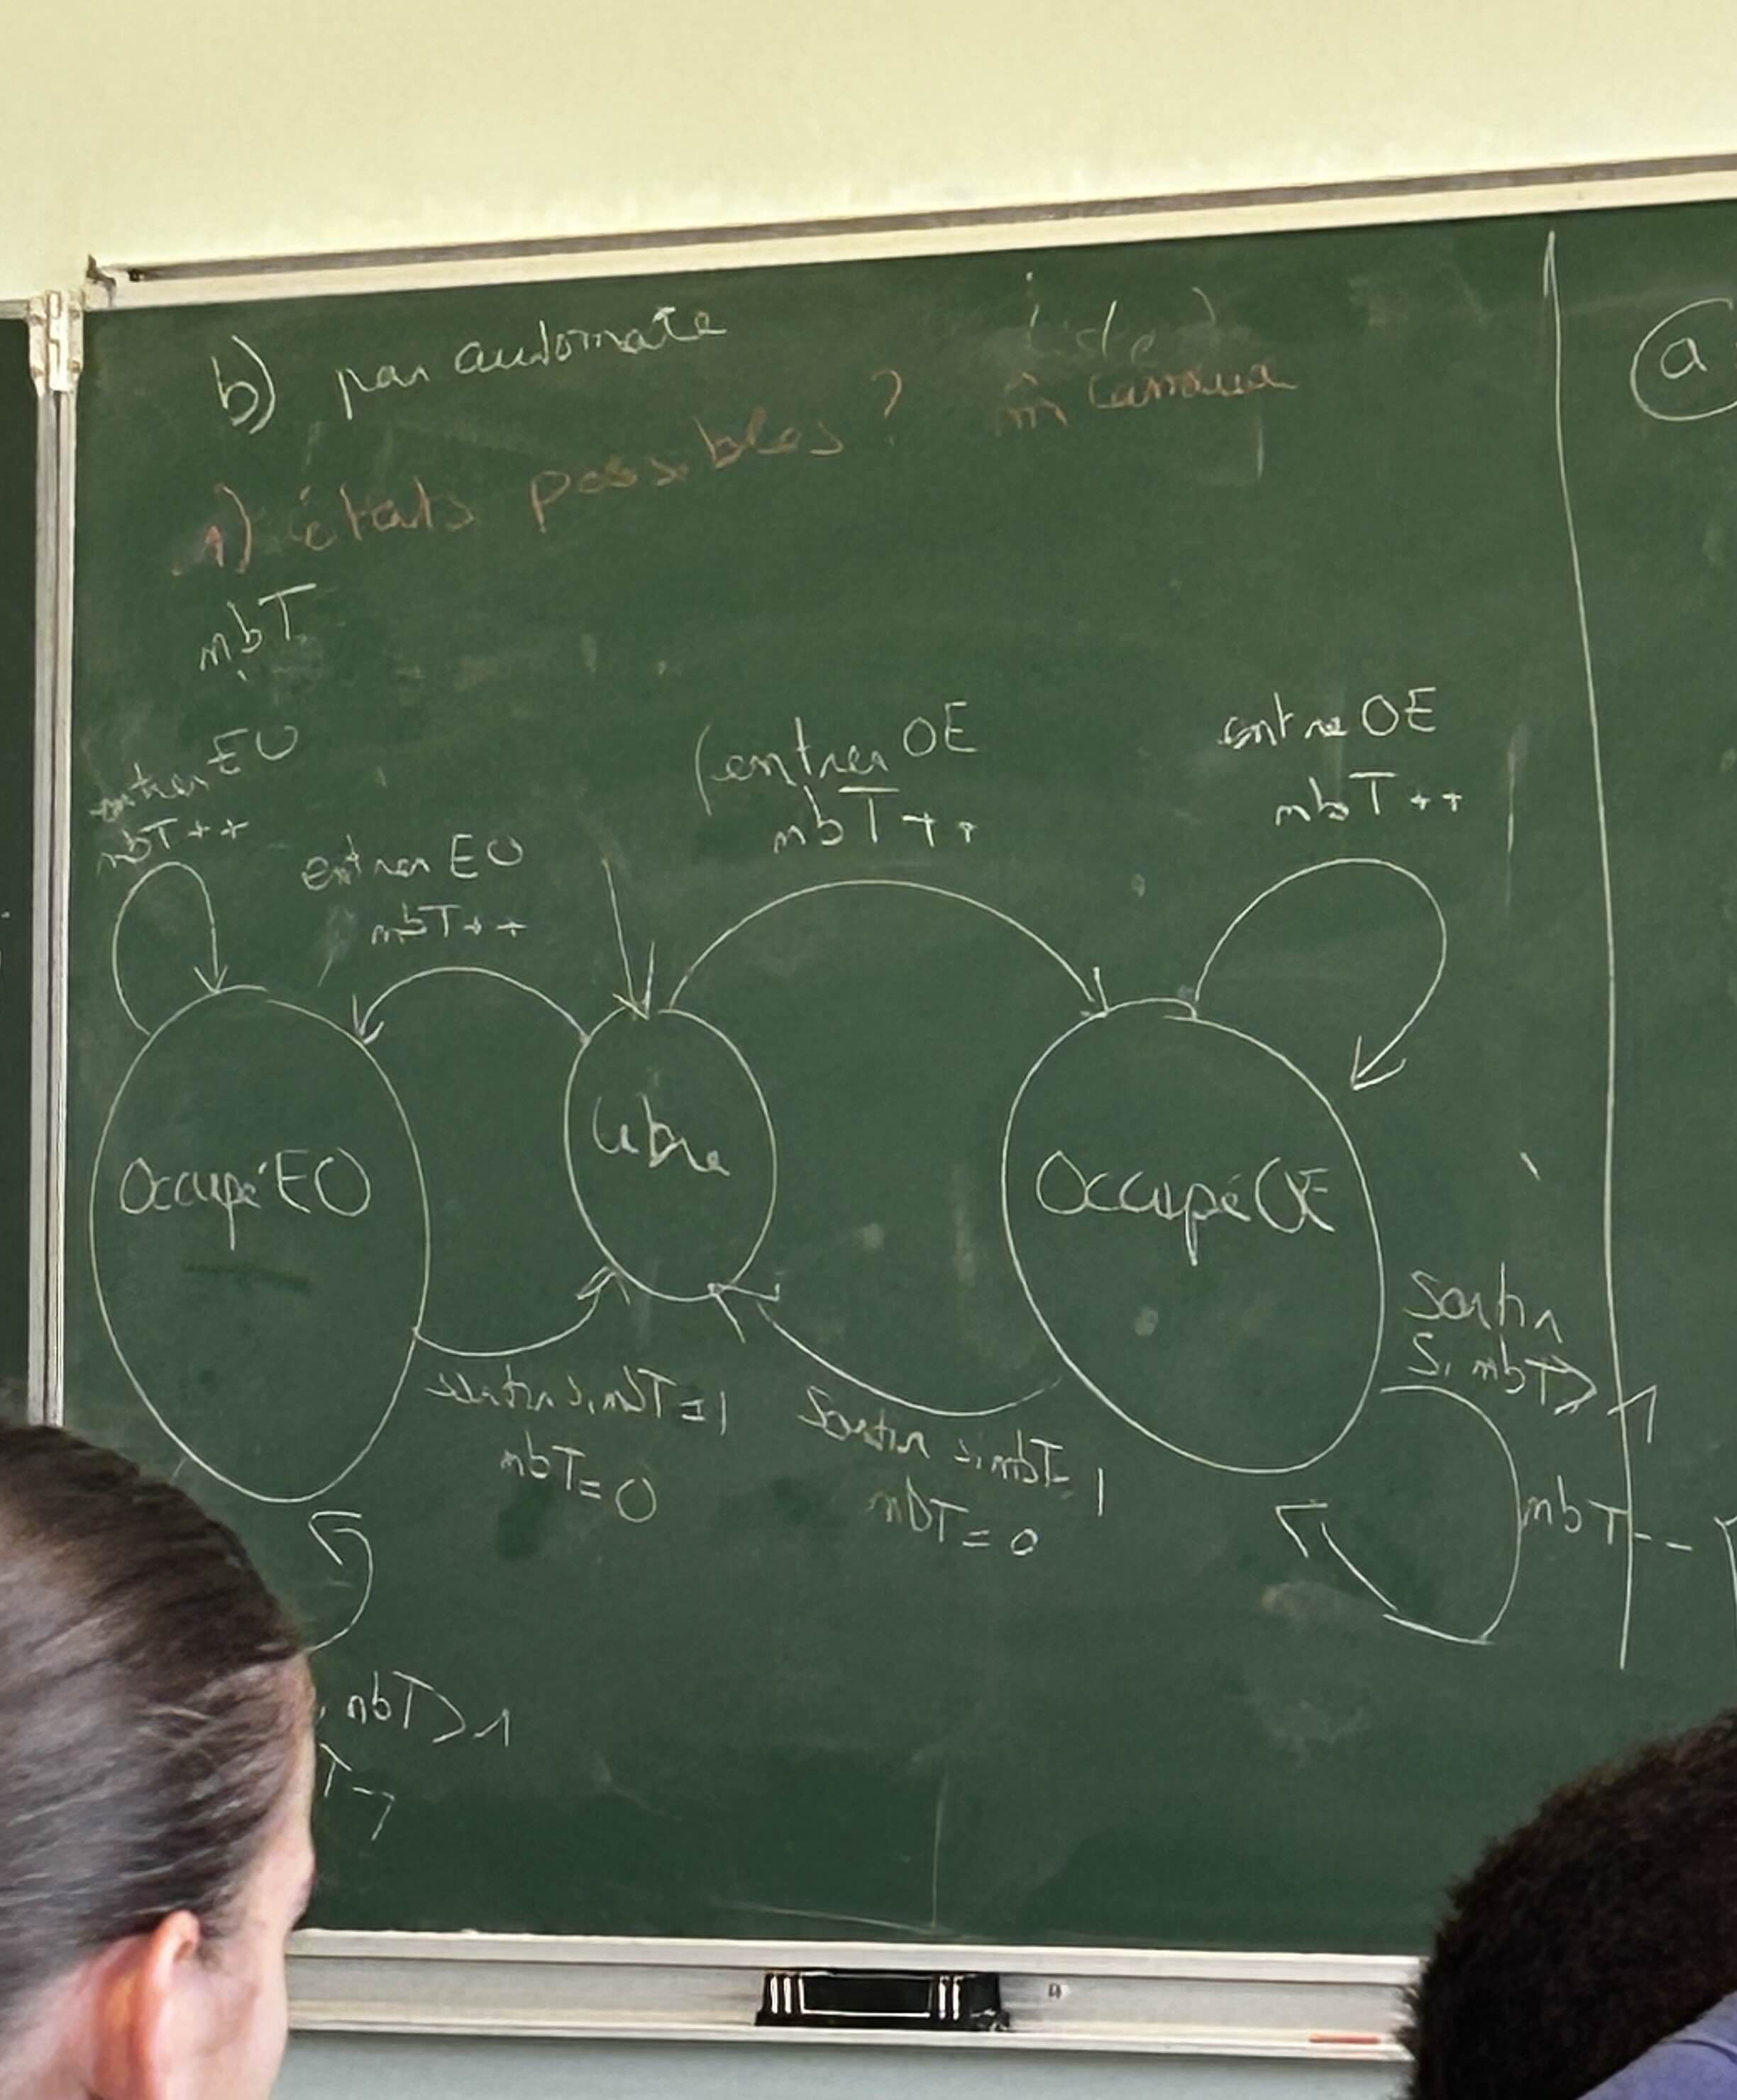 b) par automate
1) états possibles ?
nbT
entrer EO
nbT++
entrer EO
nbT++
(entrer OE
nbT++
entre OE
nbT++
Occupé EO
Libre
Occupé OE
sortir si nbT=1
nbT=0
Sortir si nbT=1
nbT=0
Sortir
Si nbT>1
nbT--
nbT>1
a